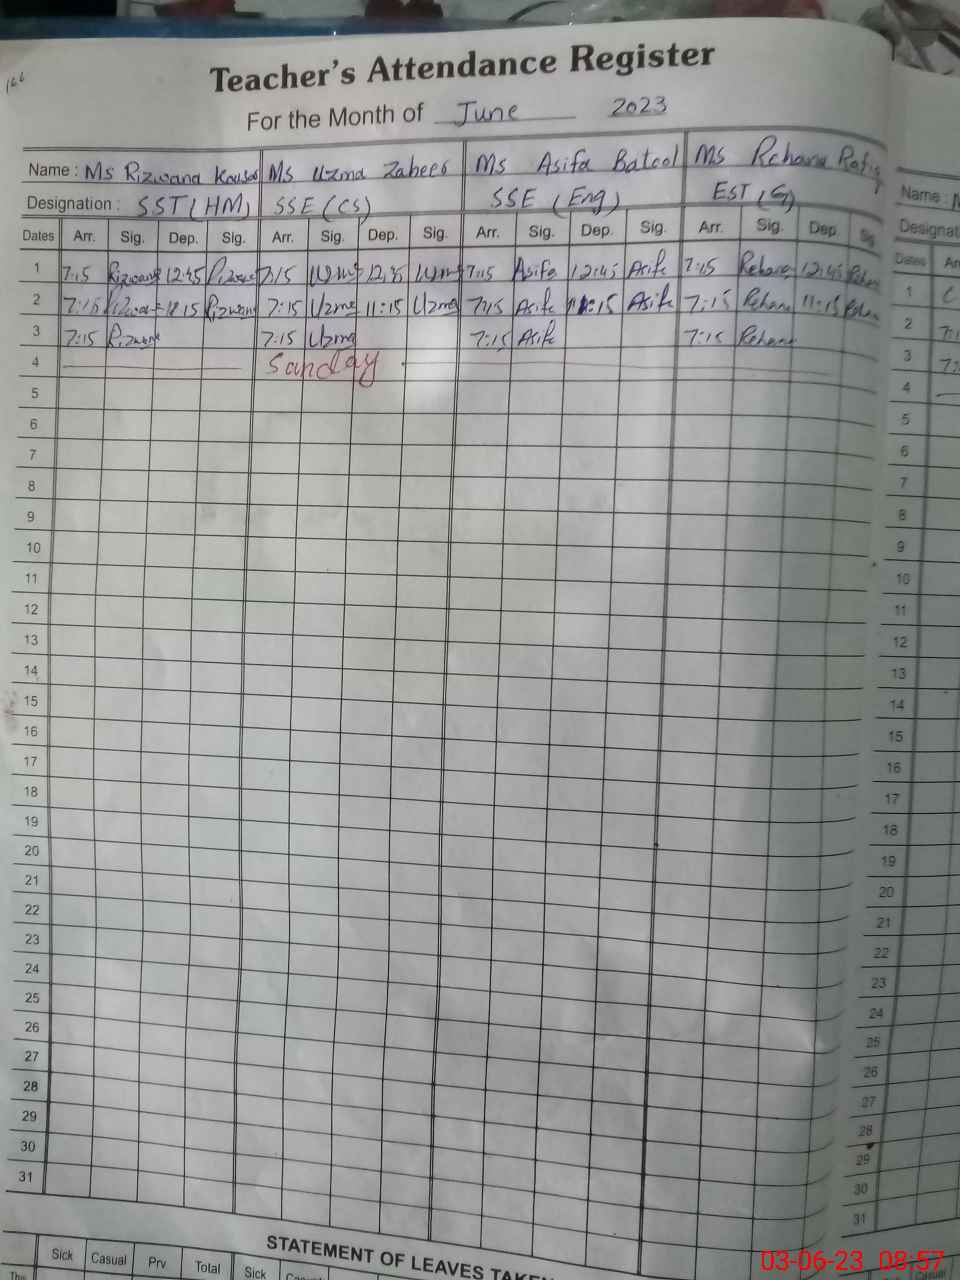 166
Teacher's Attendance Register
For the Month of June 2023
Name : Ms Rizwana Kousar Ms Uzma Zabeer Ms Asifa Batool Ms Rehana Rafiq
Designation : SST (HM) SSE (CS) SSE (Eng) EST (G)
Dates Arr. Sig. Dep. Sig. Arr. Sig. Dep. Sig. Arr. Sig. Dep. Sig. Arr. Sig. Dep. Sig.
1 7:15 Rizwana 12:45 Rizwana 7:15 Uzma 12:45 Uzma 7:15 Asifa 12:45 Asifa 7:15 Rehana 12:45 Rehana
2 7:15 Rizwana 11:15 Rizwana 7:15 Uzma 11:15 Uzma 7:15 Asifa 11:15 Asifa 7:15 Rehana 11:15 Rehana
3 7:15 Rizwana 7:15 Uzma 7:15 Asifa 7:15 Rehana
4 Sunday
5
6
7
8
9
10
11
12
13
14
15
16
17
18
19
20
21
22
23
24
25
26
27
28
29
30
31
STATEMENT OF LEAVES TAKEN
Sick Casual Prv Total Sick
Name :
Designat
Dates
1
2
3
4
5
6
7
8
9
10
11
12
13
14
15
16
17
18
19
20
21
22
23
24
25
26
27
28
29
30
31
03-06-23 08:57